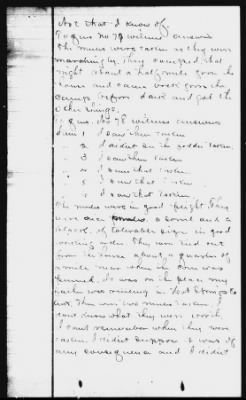 Not that I know of.
To ques no 77 witness answers
The mules were taken as they were
marching by. They camped that
night about a half mile from the
house and came back from the
camp before dark and got the
other things.
To ques. No 78 witness answers
Item 1 I saw them taken
" 2 I did not see the taken.
" 3 I saw them taken
" 4 I saw that taken
" 5 I saw that taken
" 6 I saw that taken
The mules were in good flight. They
were a sorrel and a
black, of tolerable size in good
working order. They were tied out
from the house about a quarter of
a mile near where the corn was
penned, it was on the place my
father was running in
but. There were two mules taken I
dont know what they were worth.
I cant remember when they were
taken. I did not suppose it was of
any consequence and I didnt